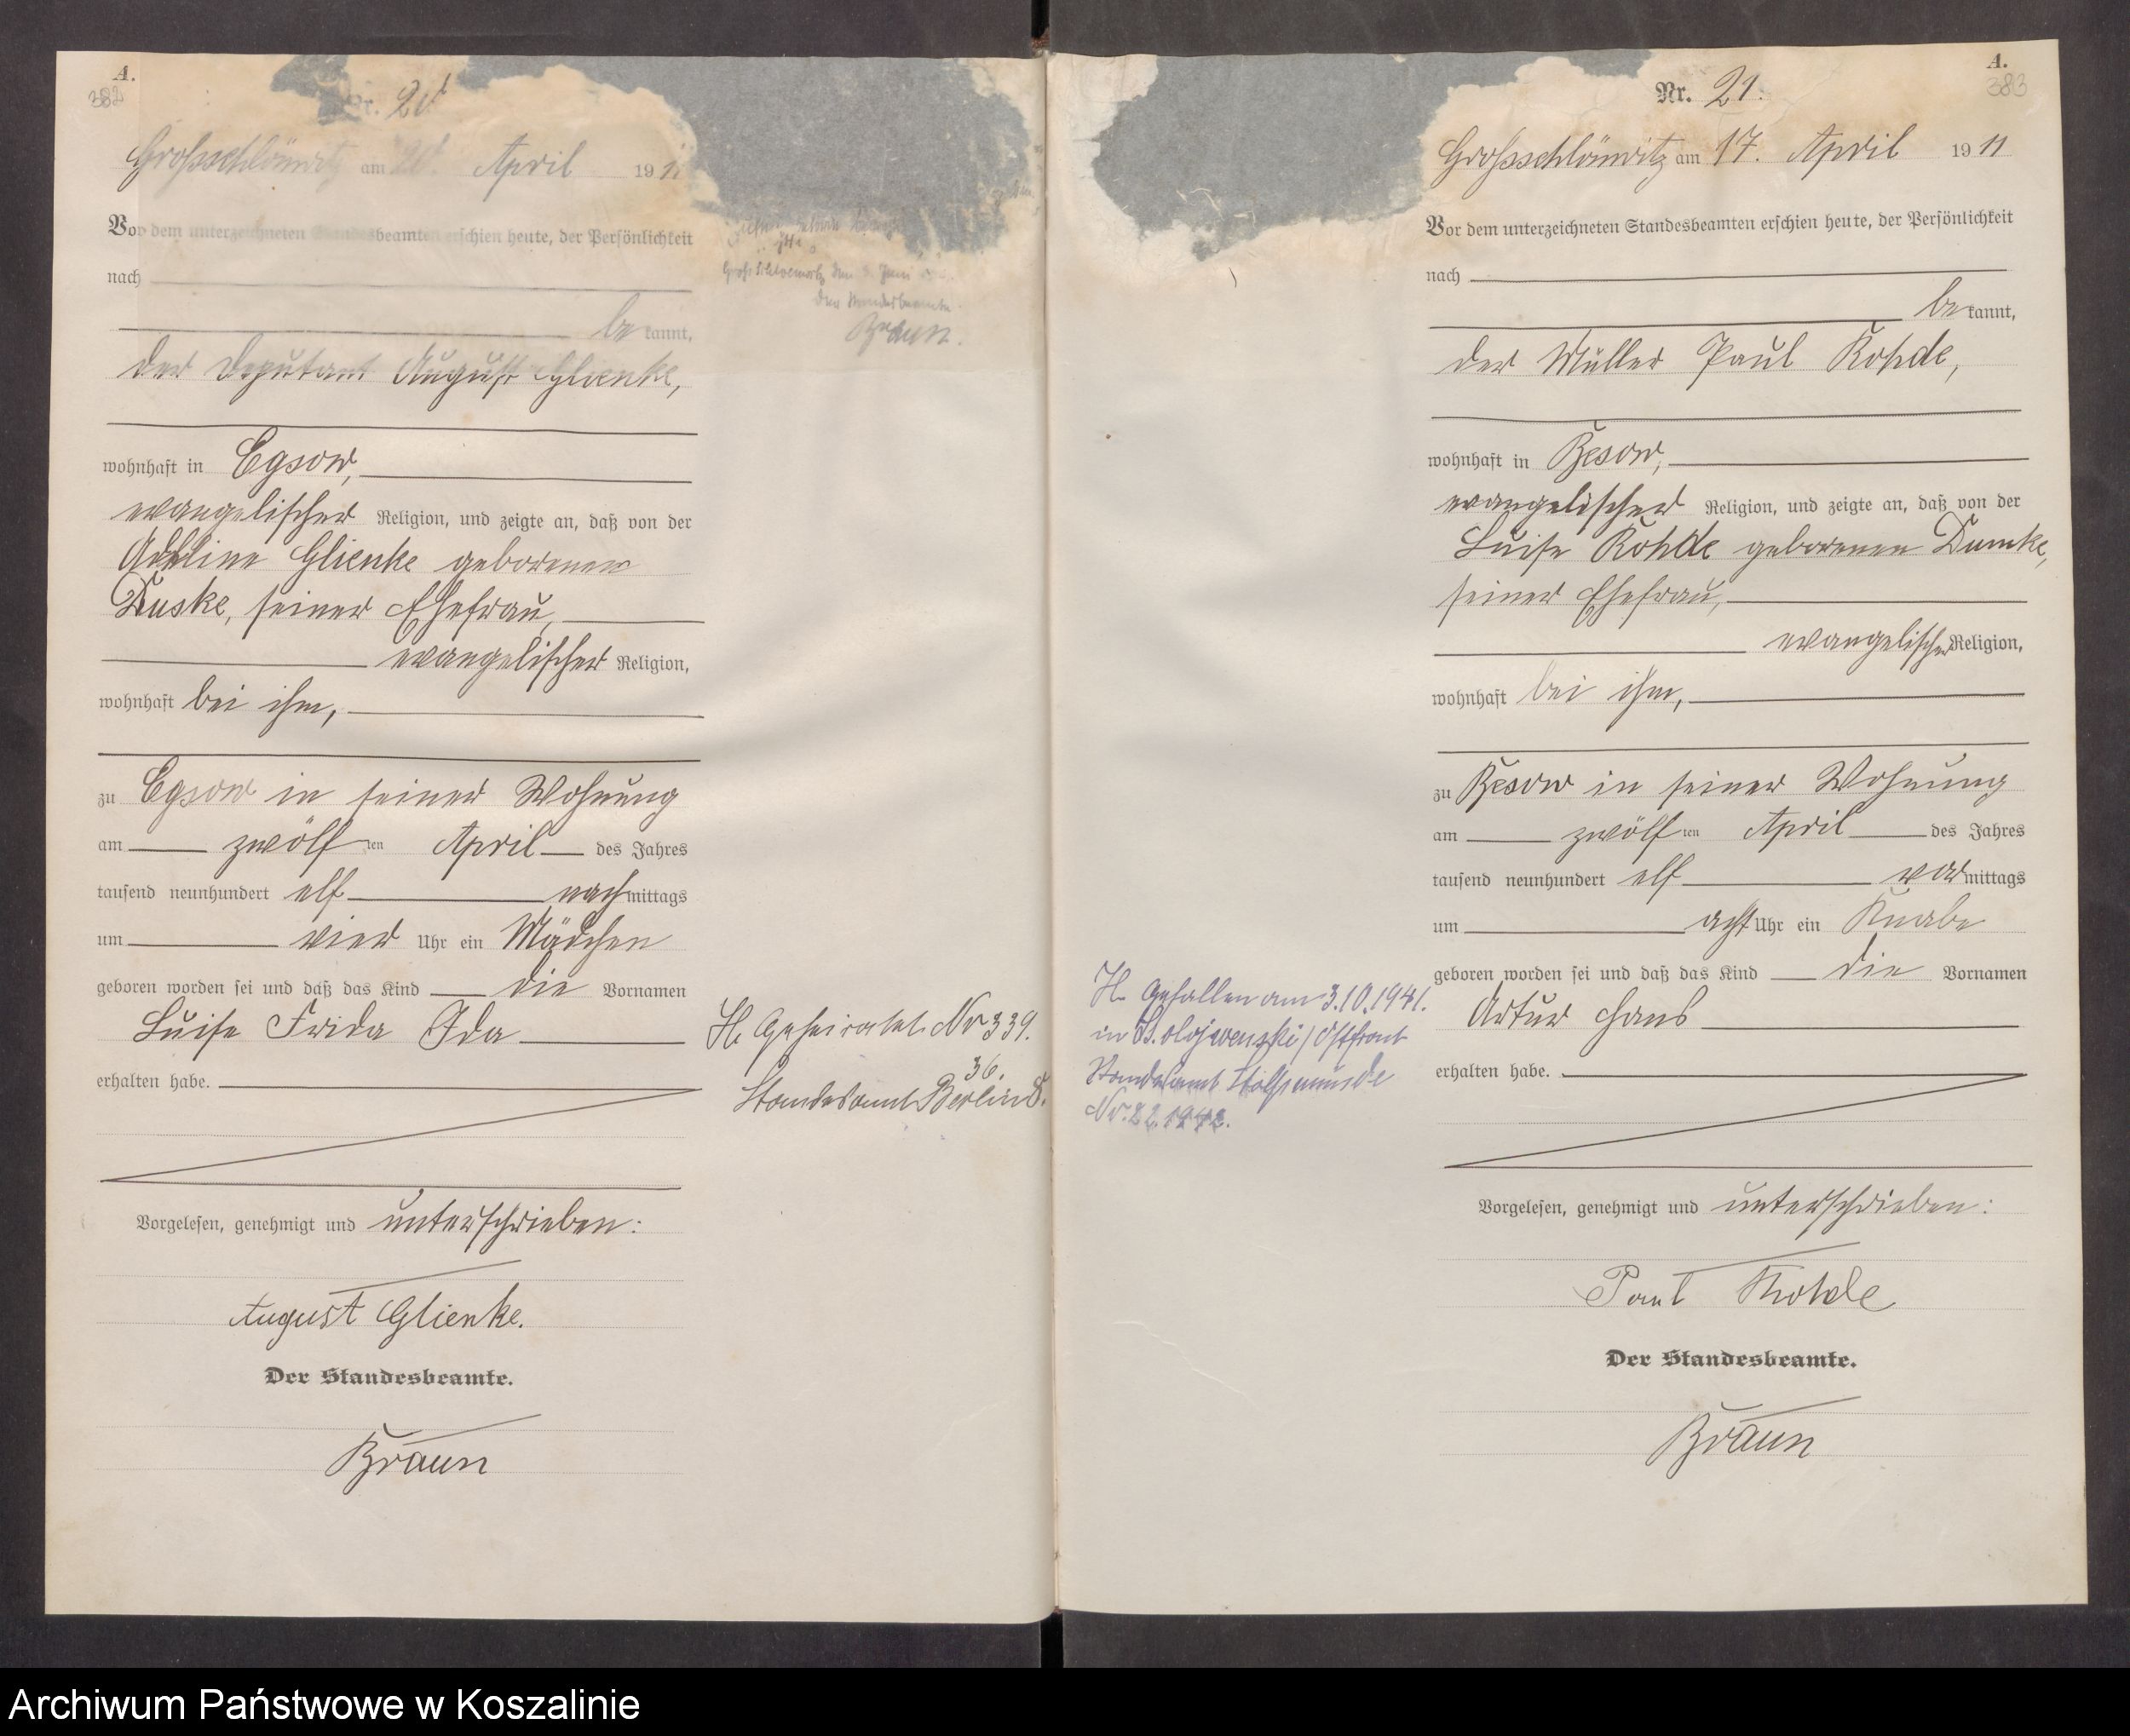 A.
382
Nr. 20
Grossschlönwitz am 20. April 1911
Vor dem unterzeichneten Standesbeamten erschien heute, der Persönlichkeit
nach
be kannt,
der Deputant August Glienke,
wohnhaft in Egsow,
evangelischer Religion, und zeigte an, daß von der
Adeline Glienke geborenen
Duske, seiner Ehefrau,
evangelischer Religion,
wohnhaft bei ihm,
zu Egsow in seiner Wohnung
am zwölf ten April des Jahres
tausend neunhundert elf nachmittags
um vier Uhr ein Mädchen
geboren worden sei und daß das Kind die Vornamen
Luise Frida Ida
erhalten habe.
Vorgelesen, genehmigt und unterschrieben:
August Glienke.
Der Standesbeamte.
Braun
Groß Schloenwitz den Juni
Der Standesbeamte.
Braun.
H. Geheiratet Nr 339.
36.
Standesamt Berlin
A.
383
Nr. 21.
Grossschlönwitz am 17. April 1911
Vor dem unterzeichneten Standesbeamten erschien heute, der Persönlichkeit
nach
be kannt,
der Müller Paul Rohde,
wohnhaft in Besow,
evangelischer Religion, und zeigte an, daß von der
Luise Rohde geborenen Dumke,
seiner Ehefrau,
evangelischer Religion,
wohnhaft bei ihm,
zu Besow in seiner Wohnung
am zwölf ten April des Jahres
tausend neunhundert elf vormittags
um acht Uhr ein Knabe
geboren worden sei und daß das Kind die Vornamen
Artur Hans
erhalten habe.
Vorgelesen, genehmigt und unterschrieben:
Paul Rohde
Der Standesbeamte.
Braun
H. Gefallen am 3.10.1941.
in / Ostfront
Standesamt Stolpmünde
Nr. 22.1942.
Archiwum Państwowe w Koszalinie